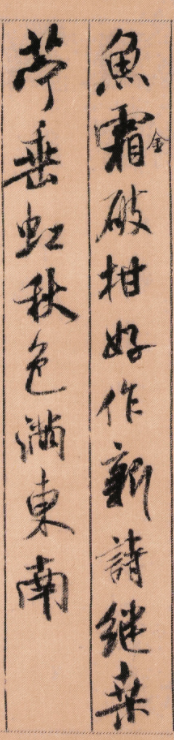 魚霜金破柑好作新詩繼桑
苧垂虹秋色滿東南